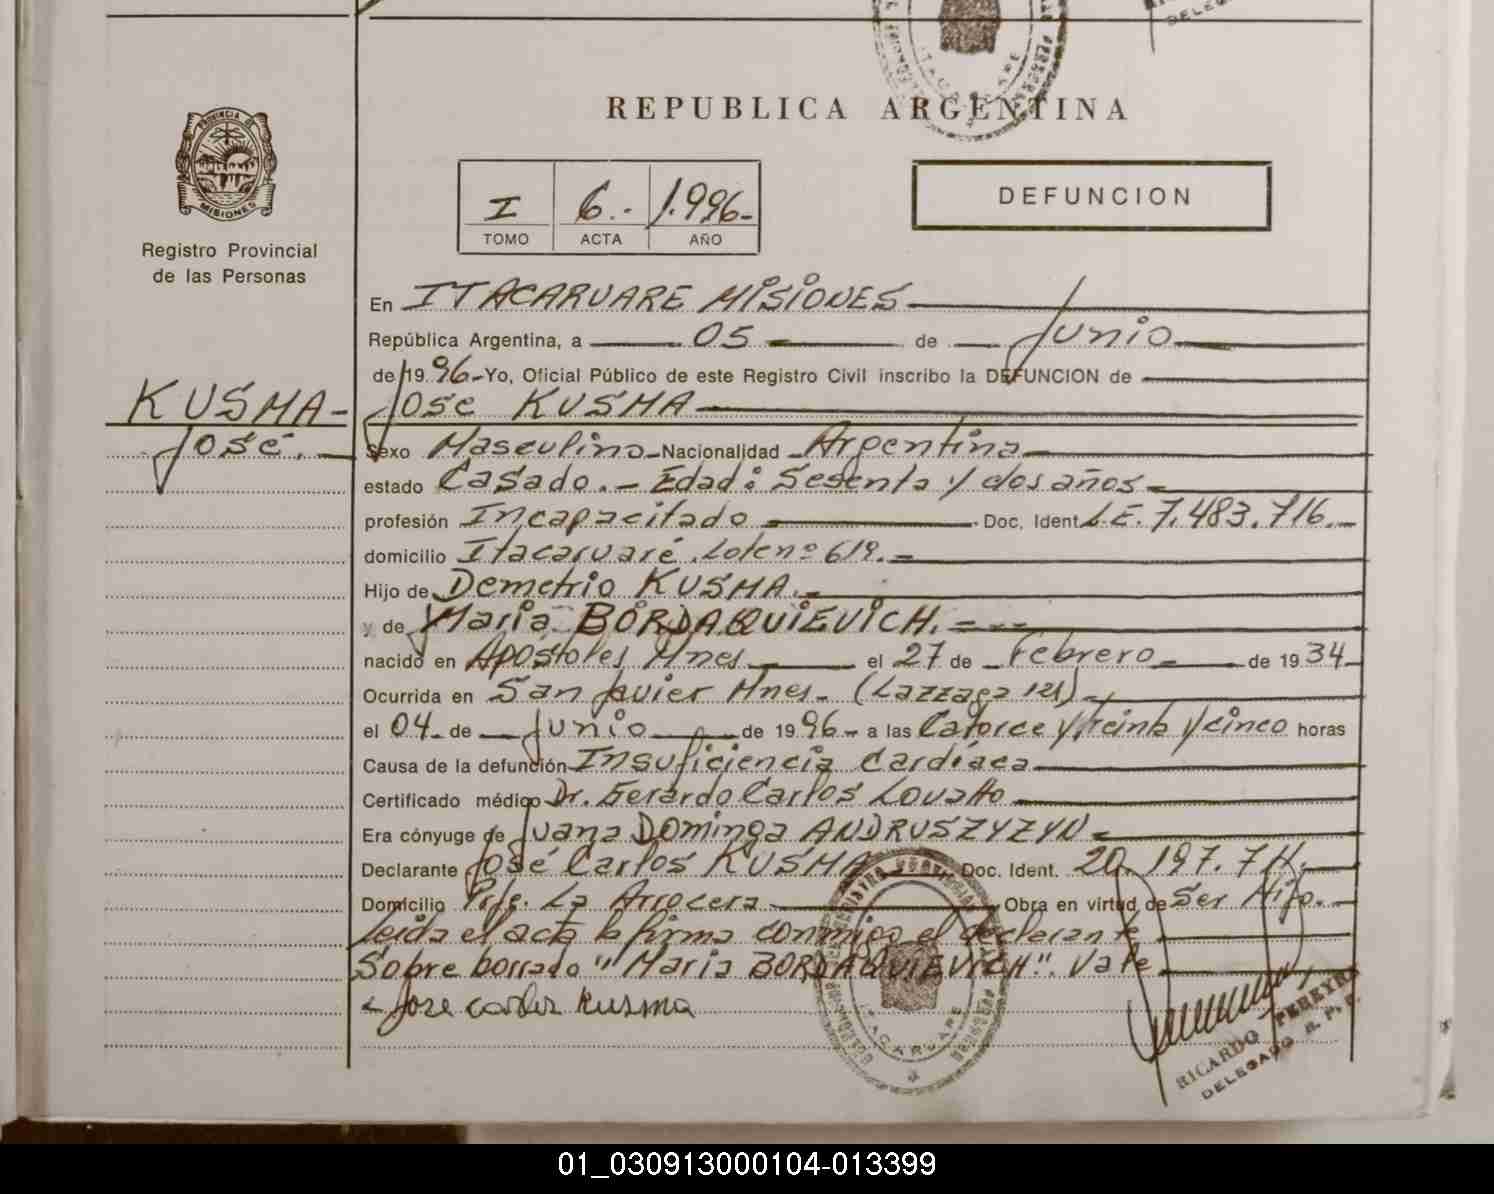 REPUBLICA ARGENTINA
PROVINCIA DE
MISIONES
Registro Provincial
de las Personas
I 6.- 1.996-
TOMO ACTA AÑO
DEFUNCION
KUSMA-
José.-
En ITACARUARE MISIONES
República Argentina, a 05 de Junio
de 19 96-Yo, Oficial Público de este Registro Civil inscribo la DEFUNCION de
Jose KUSMA
Sexo Masculino-Nacionalidad Argentina
estado Casado.- Edad: Sesenta y dos años-
profesión Incapacitado Doc, Ident L.E. 7.483.716.-
domicilio Itacaruaré. Lote nº 619.-
Hijo de Demetrio KUSMA.-
y de Maria BORDAQUIEVICH.---
nacido en Apóstoles Mnes. el 27 de Febrero de 19 34-
Ocurrida en San Javier Mnes- (Lazzaga 121)-
el 04 de Junio de 19 96- a las Catorce y treinta y cinco horas
Causa de la defunción Insuficiencia Cardíaca
Certificado médico Dr. Gerardo Carlos Lovatto
Era cónyuge de Juana Dominga ANDRUSZYZYN-
Declarante José Carlos KUSMA Doc. Ident. 20.197.711.-
Domicilio Pje. La Arrocera Obra en virtud de Ser Hijo.-
Leida el acta la firma conmigo el declarante
Sobre borrado "Maria BORDAQUIEVICH". Vale
Jose carlos kusma
ITACARUARE
RICARDO PEREYRA
DELEGADO R. P. P.
01_030913000104-013399